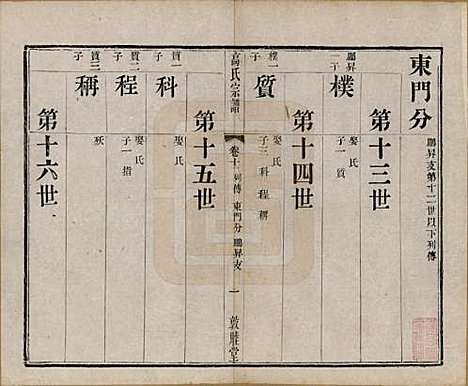 東門分
鵬昇支第十二世以下列傳
第十三世
鵬昇一子
樸
娶氏
子一質
第十四世
樸一子
質
娶氏
子三科程稱
高氏宗譜
卷十
列傳
東門分
鵬昇支
一
敦睦堂
第十五世
質一子
科
娶氏
質二子
程
娶氏
子一指
質三子
稱
殀
第十六世